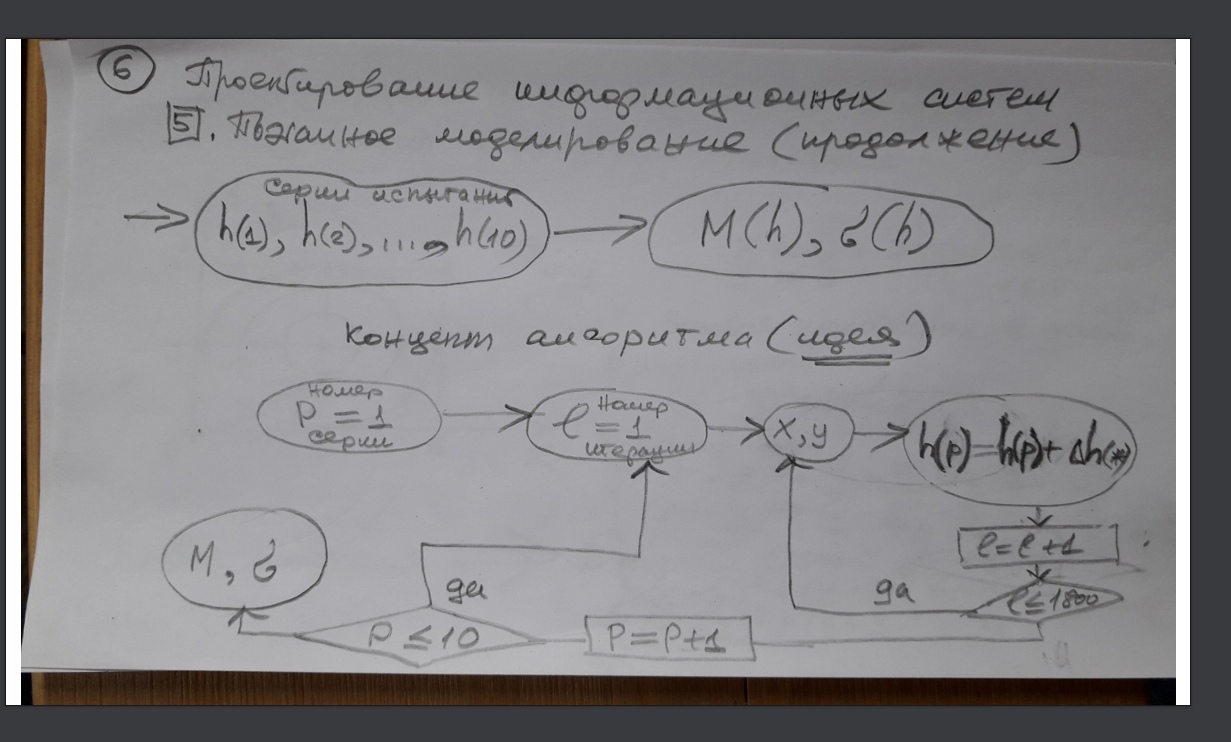 6 Проектирование информационных систем
5. моделирование (продолжение)
серии испытаний
h(1), h(2), ..., h(10)
M(h), σ(h)
Концепт алгоритма (идея)
номер
P = 1
серии
Номер
ℓ = 1
итерации
x, y
h(p) = h(p) + Δh(*)
ℓ = ℓ + 1
ℓ ≤ 1800
да
P = P + 1
P ≤ 10
да
M, σ